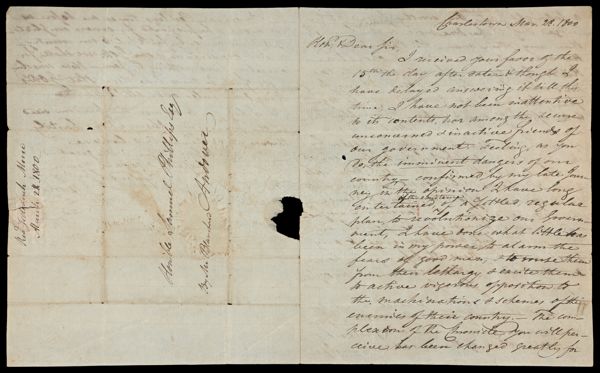 Rev. Jedidiah Morse
March 28. 1800
Honble. Samuel Phillips Esq
Andover
By Mr. Blanchard
Charlestown Mar. 28. 1800
Hon. Dear Sir,
I received your favor of the
15th the day after date & though I
have delayed answering it till this
time, I have not been inattentive
to its contents, nor among the secure
unconcerned & inactive friends of
our government. Feeling, as you
do, the imminent dangers of our
country — confirmed by my late Jour-
ney in the opinion I have long
entertained of a settled regular
plan to revolutionize our Govern-
ment, I have done what little has
been in my power to alarm the
fears of good men, & to rouse them
from their lethargy & excite them
to active vigorous opposition to
the machinations & schemes of the
enemies of their country. — The com-
plexion of the you will per-
ceive has been changed greatly for